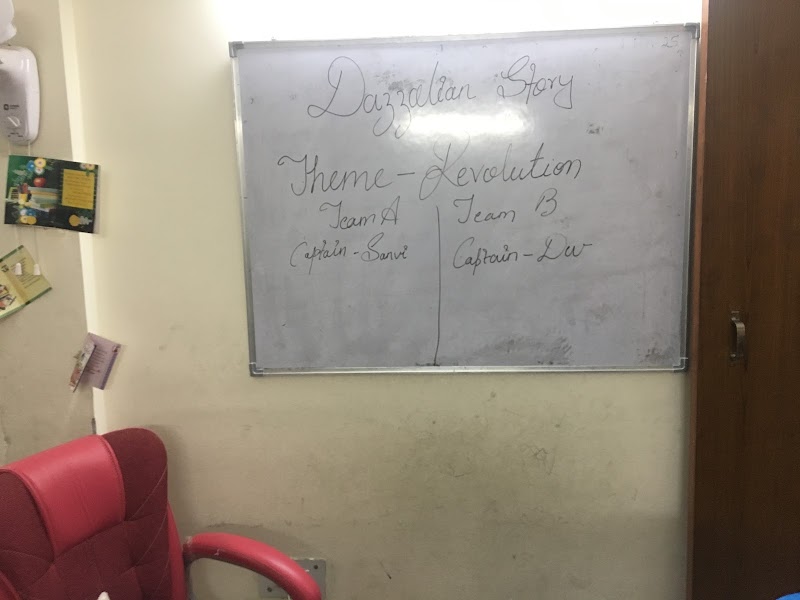 Dazzalian Story
Theme - Revolution
Team A
Captain - Sanvi
Team B
Captain - Dev